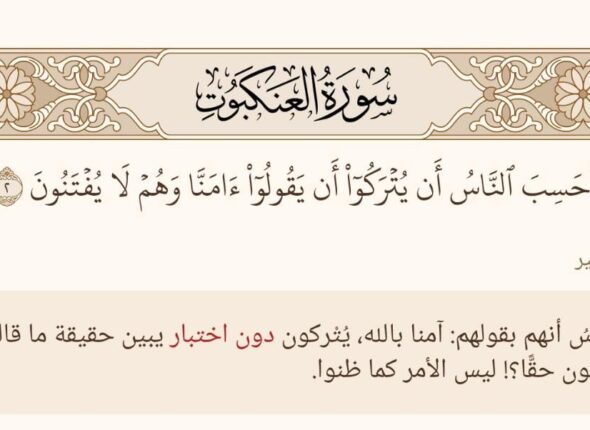 سُورَةُ العَنكَبُوتِ
حَسِبَ ٱلنَّاسُ أَن يُتْرَكُوٓا۟ أَن يَقُولُوٓا۟ ءَامَنَّا وَهُمْ لَا يُفْتَنُونَ ٢
أنهم بقولهم: آمنا بالله، يُتْركون دون اختبار يبين حقيقة ما
حقًّا؟! ليس الأمر كما ظنوا.